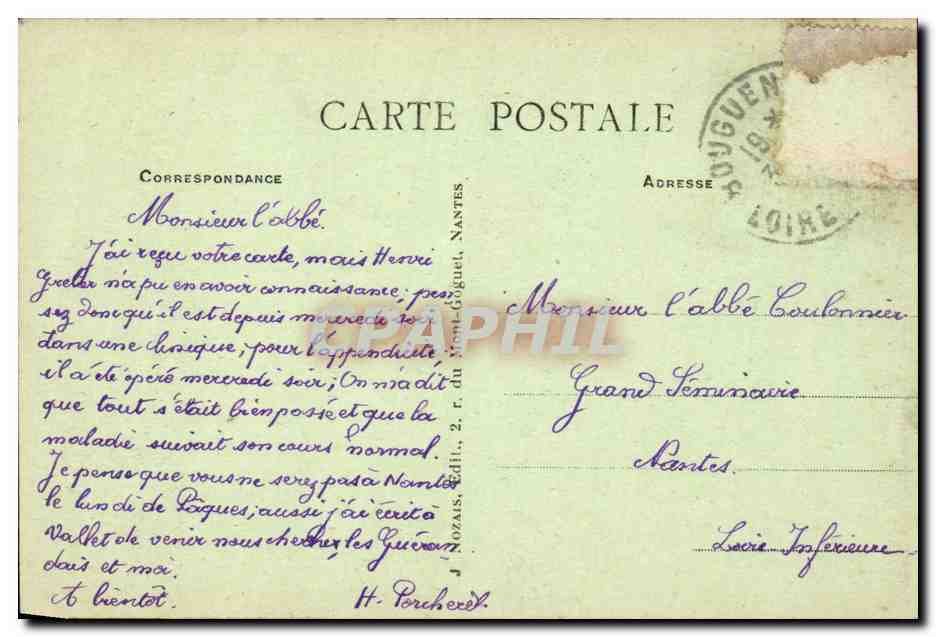 CARTE POSTALE
CORRESPONDANCE
Monsieur l'abbé.
J'ai reçu votre carte, mais Henri
n'a pu en avoir connaissance; pen
sez donc qu'il est depuis mercredi soir
dans une clinique, pour l'appendicite;
il a été opéré mercredi soir; On m'a dit
que tout s'était bien passé et que la
maladie suivait son cours normal.
Je pense que vous ne serez pas à Nantes
le lundi de Pâques; aussi j'ai écrit à
Vallet de venir nous chercher, les Guéran
dais et moi.
A bientôt.
H. Porcheret
J NOZAIS, Edit., 2, r. du Mont-Goguet, NANTES
ADRESSE
Monsieur l'abbé Coulonnier
Grand Séminaire
Nantes.
Loire Inférieure
BOUGUEN
19
LOIRE
CPAPHIL